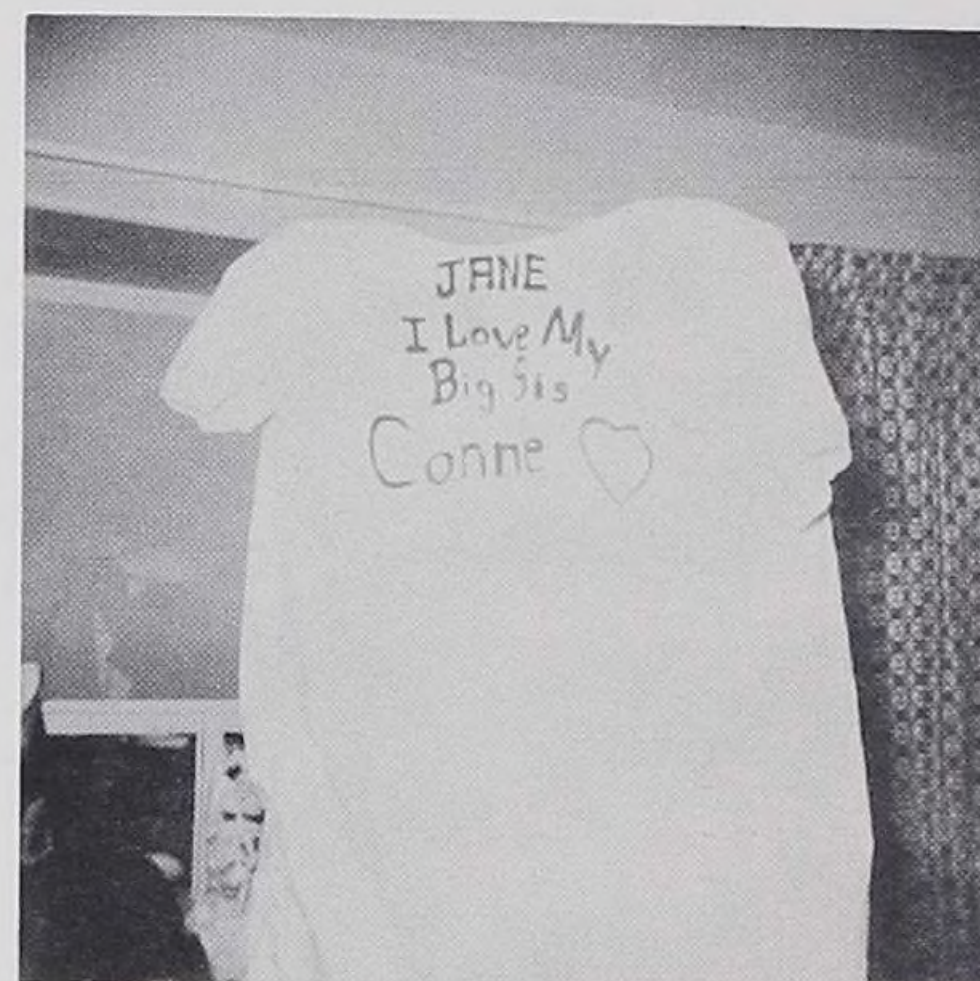 JANE
I Love My
Big Sis
Conne